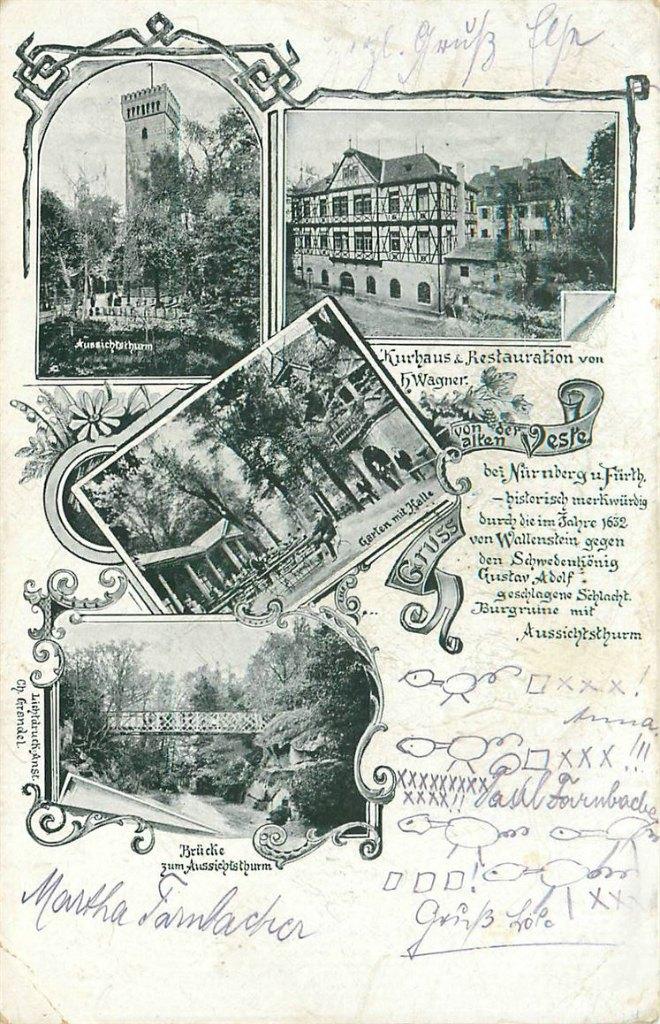 herzl. Gruß Else
Aussichtsthurm
Kurhaus & Restauration von
H Wagner.
Gruss
von der
alten Veste
bei Nürnberg u Fürth,
– historisch merkwürdig
durch die im Jahre 1632
von Wallenstein gegen
den Schwedenkönig
Gustav Adolf
geschlagene Schlacht.
Burgruine mit
Aussichtsthurm
Garten mit Halle
Lichtdruck-Anst.
Ch. Grandel.
Brücke
zum Aussichtsthurm
xxx!
Anna
xxx!!!
xxxxxxxxx
xxxx!! Paul Farnbacher
! xx
Gruß
Martha Farnbacher